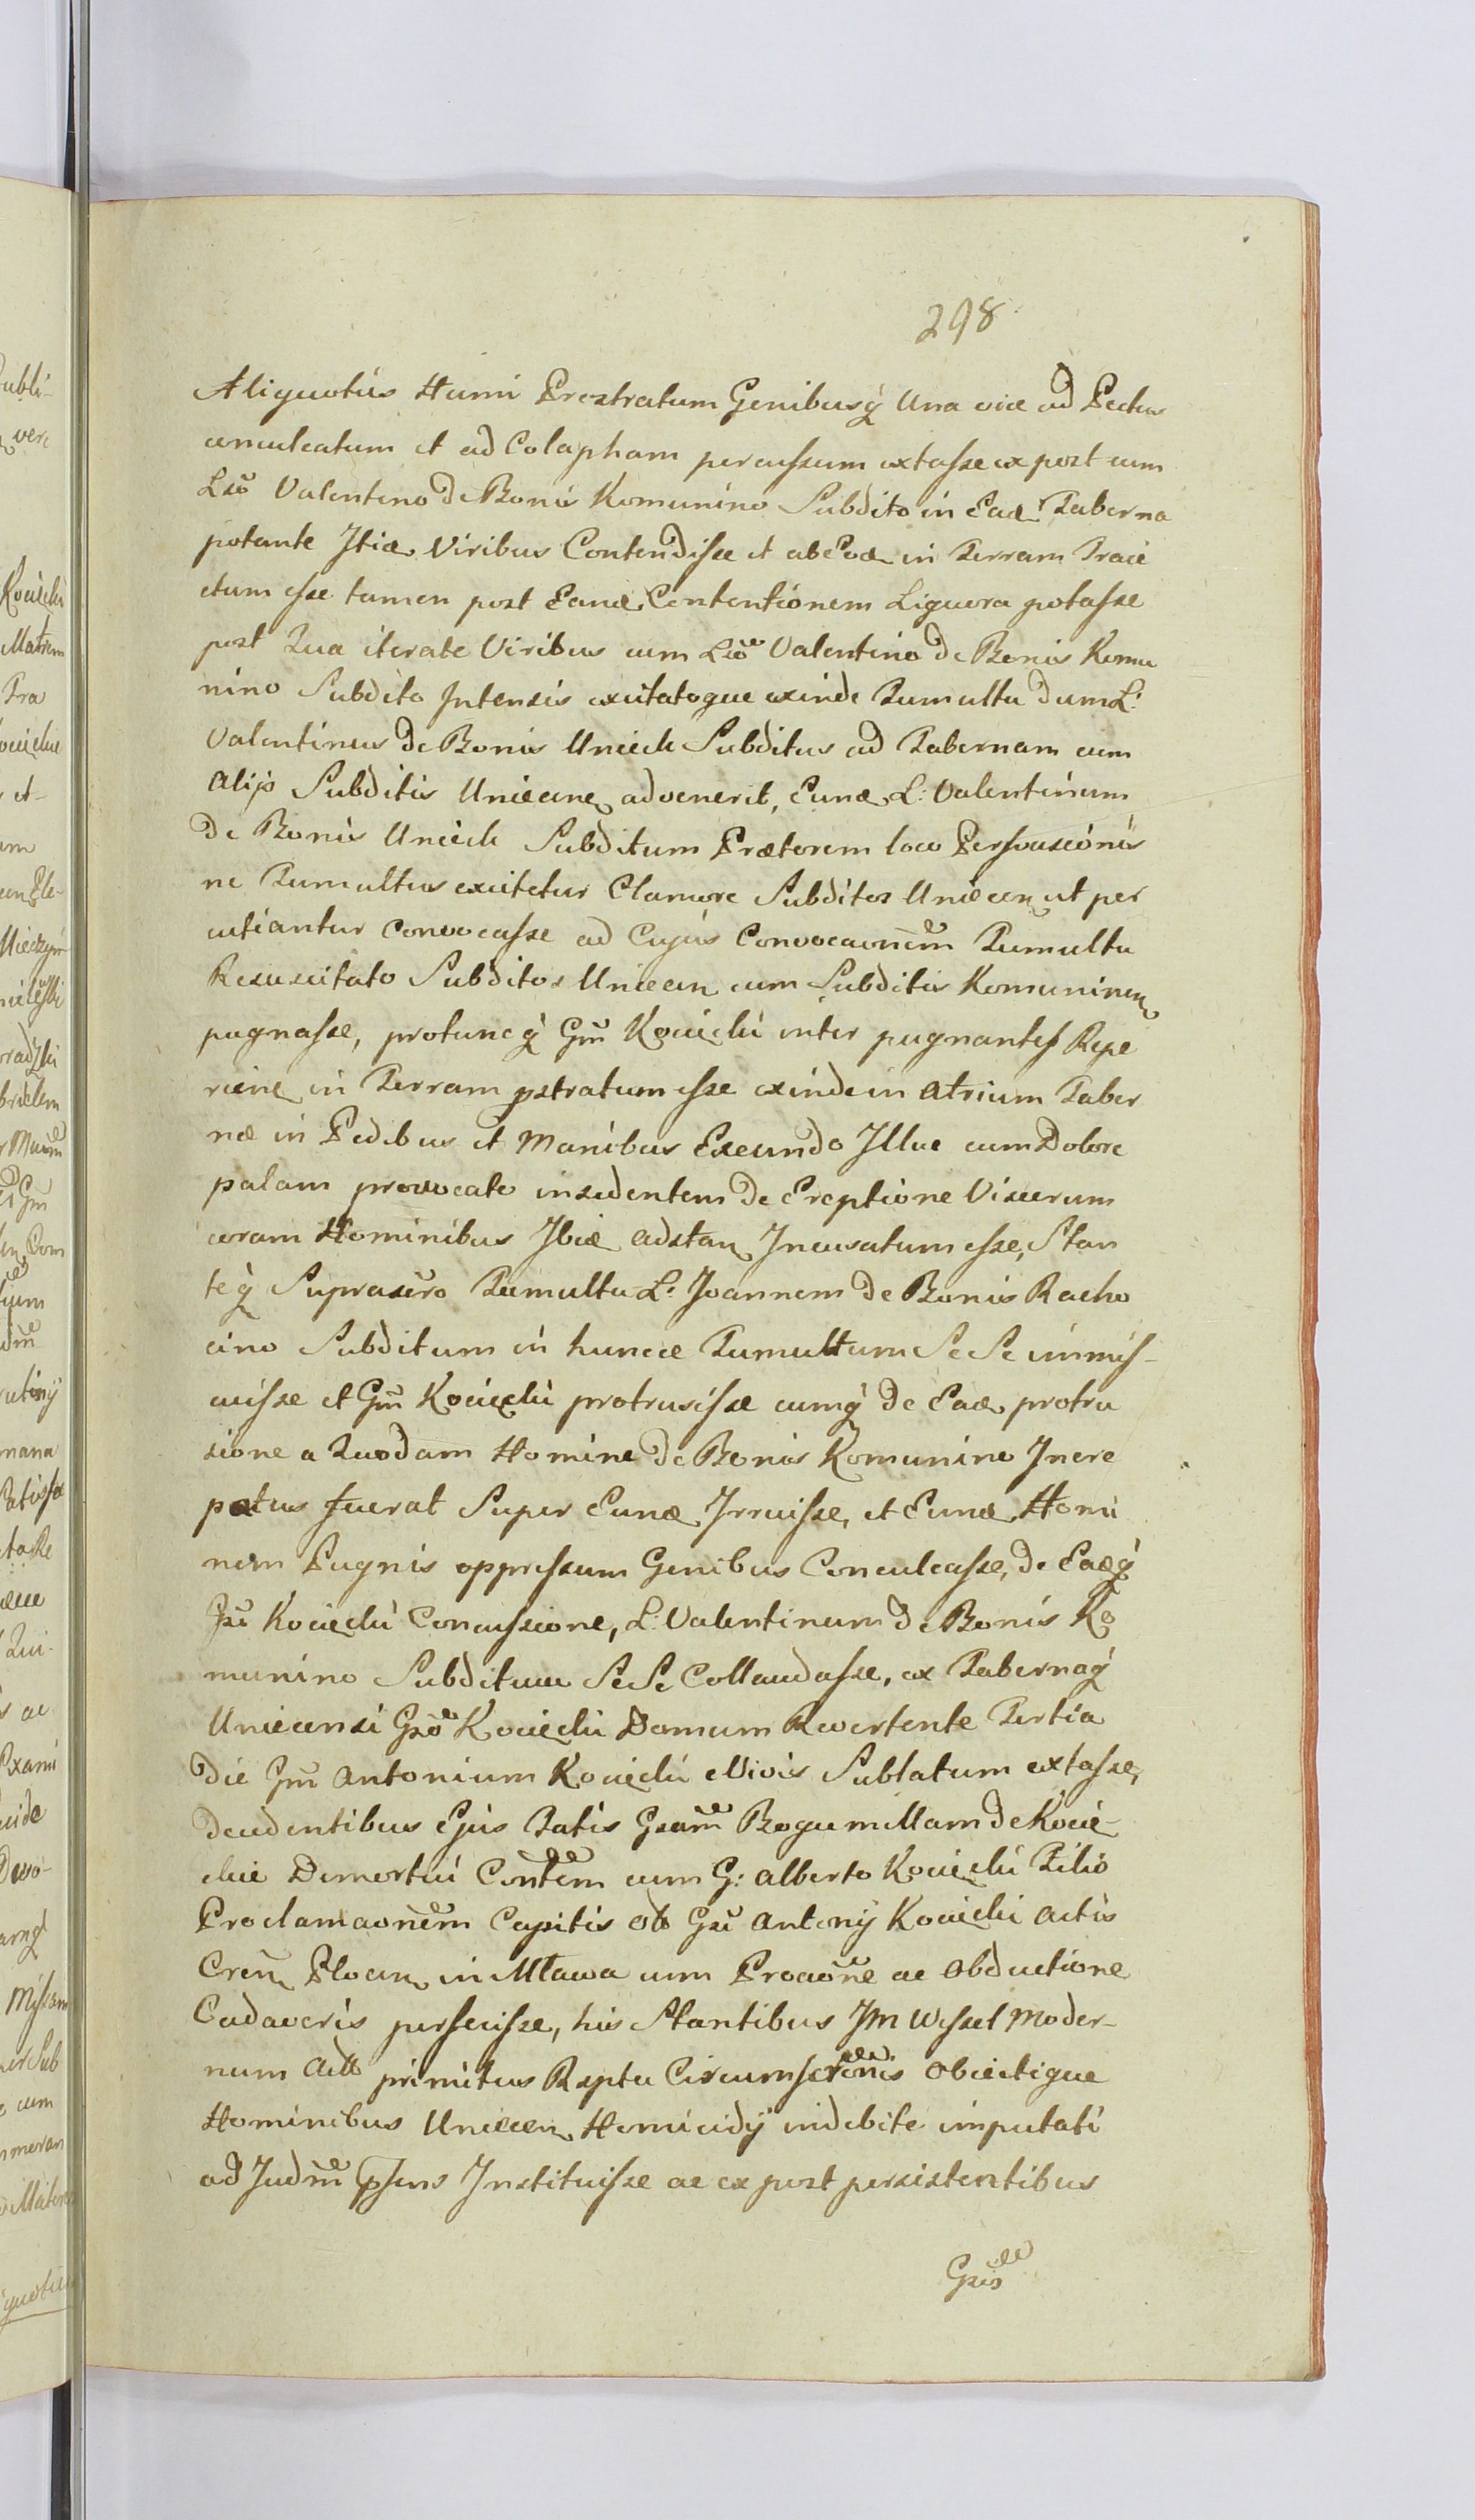 298
Aliquotus Humi Prostratum Genibusq́ Una vice ad Pectus
conculcatum et ad Colapham percussum extasse ex post cum
Lsõ Valentino de Bonis Komunino Subdito in Eadē Taberna
potante Itid. Viribus Contendisse et ab Eod. in Terram Traie
ctum esse tamen post Eand. Contentionem Liquora potasse
post Qua iterate Viribus cum Lsõ Valentino de Bonis Komu
nino Subdito Intensis excitatoque exinde Tumultu dum L:
Valentinus de Bonis Unieck Subditus ad Tabernam cum
Alijs Subditis Uniecen. advenerit, Eund. L: Valentinum
de Bonis Unieck Subditum Prætorem loco Persvasionis
ne Tumultus excitetur Clamore Subditos Uniecen. ut per
cutiantur convocasse ad Cujus Convocaonem̃ Tumultu
Resuscitato Subditos Uniecen cum Subditis Komuninen.
pugnasse, protuncq́ Gm̃ Kocięcki inter pugnantes Repe
rien. in Terram pstratum esse exinde in Atrium Taber
næ in Pedibus et Manibus Exeundo Illuc cum Dolore
palam provocato insidentem de Ereptione Viscerum
coram Hominibus Ibid. adstan. Incusatum esse, Stan
teq́ Suprascr̃o Tumultu L: Joannem de Bonis Racho
cino Subditum in huncce Tumultum Se Se immis-
cuisse et Gm̃ Kocięcki protrusisse cumq́ de Ead. protru
sione a Quodam Homine de Bonis Komunino Incre
patus fuerat Super Eund. Irruisse, et Eund. Homi
nem Pugnis oppressum Genibus Conculcasse, de Eadq́
Gsi Kocięcki Concussione, L: Valentinum de Bonis Ko
munino Subditum Se Se Collaudasse, ex Tabernaq́
Uniecensi Gsõ Kocięcki Domum Revertente Tertia
die Gm̃ Antonium Kocięcki e Vivis Sublatum extasse,
decedentibus Ejus Fatis Gsam̃ Bogumillam de Kocię-
ckie Demortui Contem̃ cum G: Alberto Kocięcki Filio
Proclamaonem̃ Capitis olo Gsi Antonÿ Kocięcki Actis
Cren. Plocen. in Mława cum Procaõne ac Obductione
Cadaveris perfecisse, his Stantibus Jm Wessel Moder-
num Actt primitus Reptu Circumscr̃onis Obiectique
Hominibus Uniecen. Homicidÿ indebite imputati
ad Judm̃ Psens Instituisse ac ex post persistentibus
Gsis